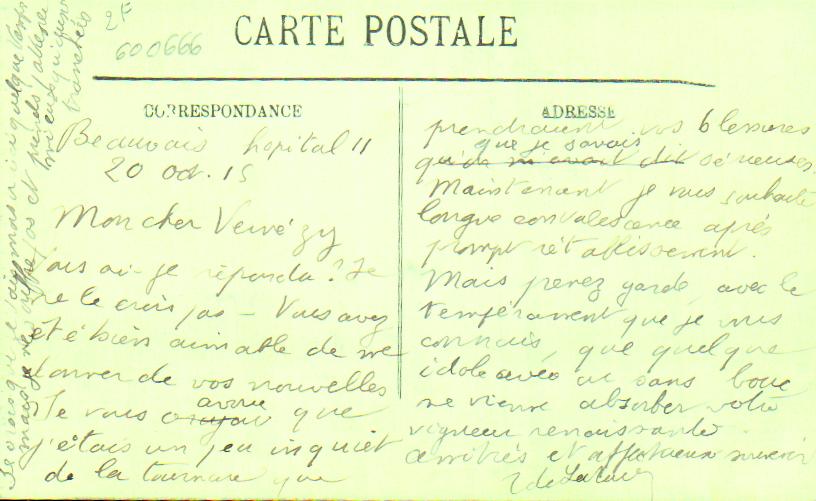 2F
600666
CARTE POSTALE
CORRESPONDANCE
Beauvais hopital 11
20 oct. 15
Mon cher Vervézy
Vous ai-je répondu? Je
ne le crois pas - Vous avez
été bien aimable de me
donner de vos nouvelles
Je vous avoue que
j'étais un peu inquiet
de la tournure que
ADRESSE
prendraient vos blessures
que je savais
qu'on m'avait dit sérieuses.
Maintenant je vous souhaite
longue convalescence après
prompt rétablissement.
Mais prenez garde, avec le
tempérament que je vous
connais, que quelque
idole avec ou sans bouc
ne vienne absorber votre
vigueur renaissante.
amitiés et affectueux souvenir
de
quelque temps
mais je ne souffre pas et
tranchées